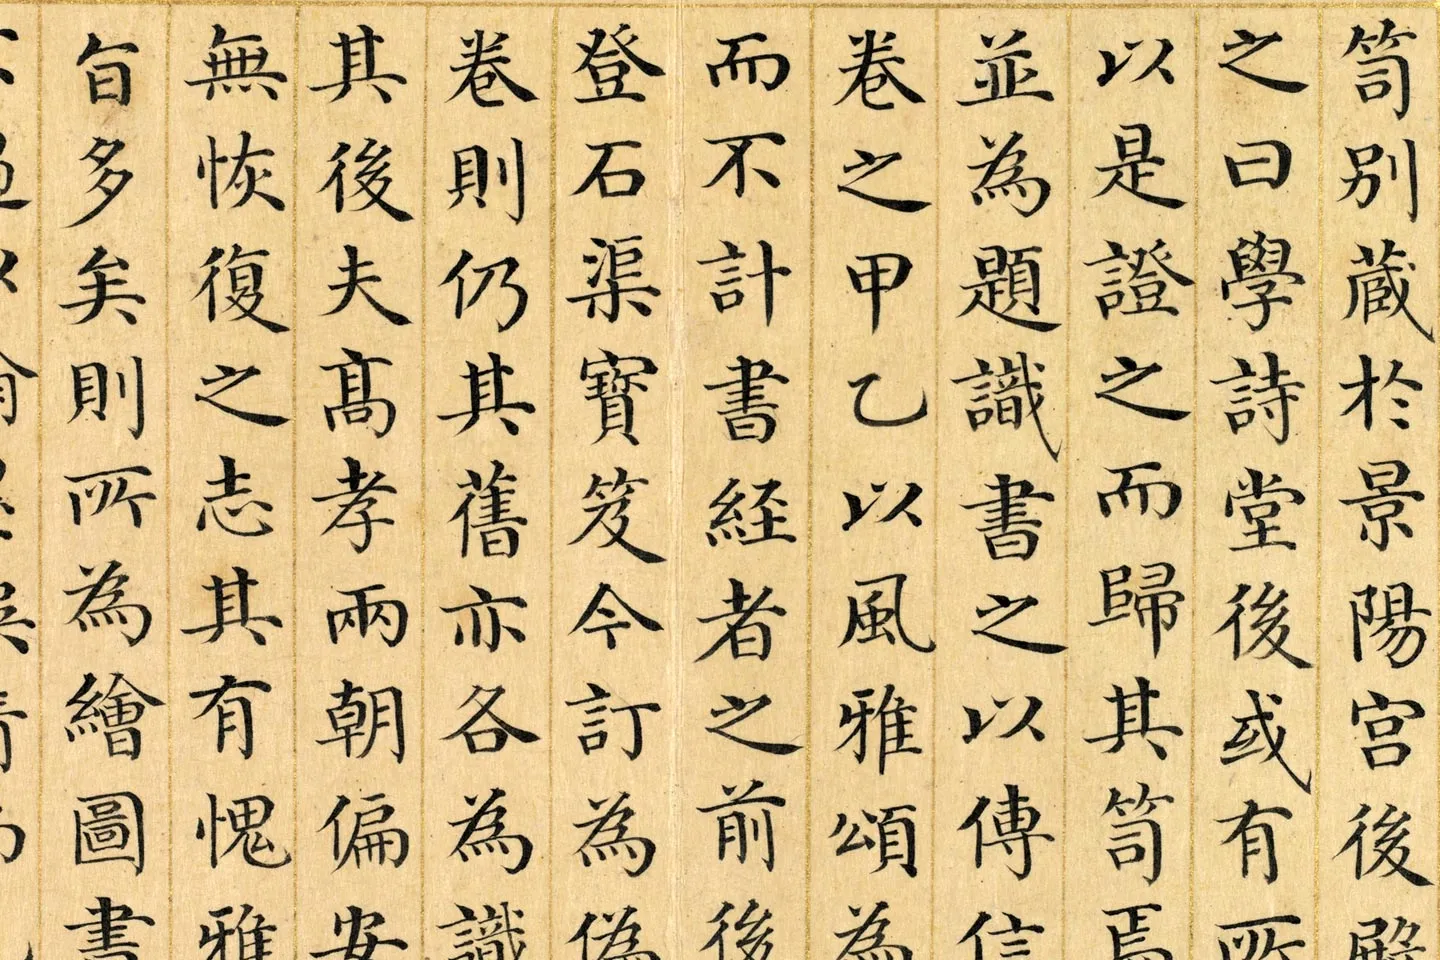 笥别蔵於景陽宫後殿
之曰學詩堂後或有所
以是證之而歸其笥焉
並為題識書之以傳信
卷之甲乙以風雅頌為
而不計書経者之前後
登石渠寶笈今訂為偽
卷則仍其舊亦各為識
其後夫髙孝兩朝偏安
無恢復之志其有愧雅
旨多矣則所為繪圖書